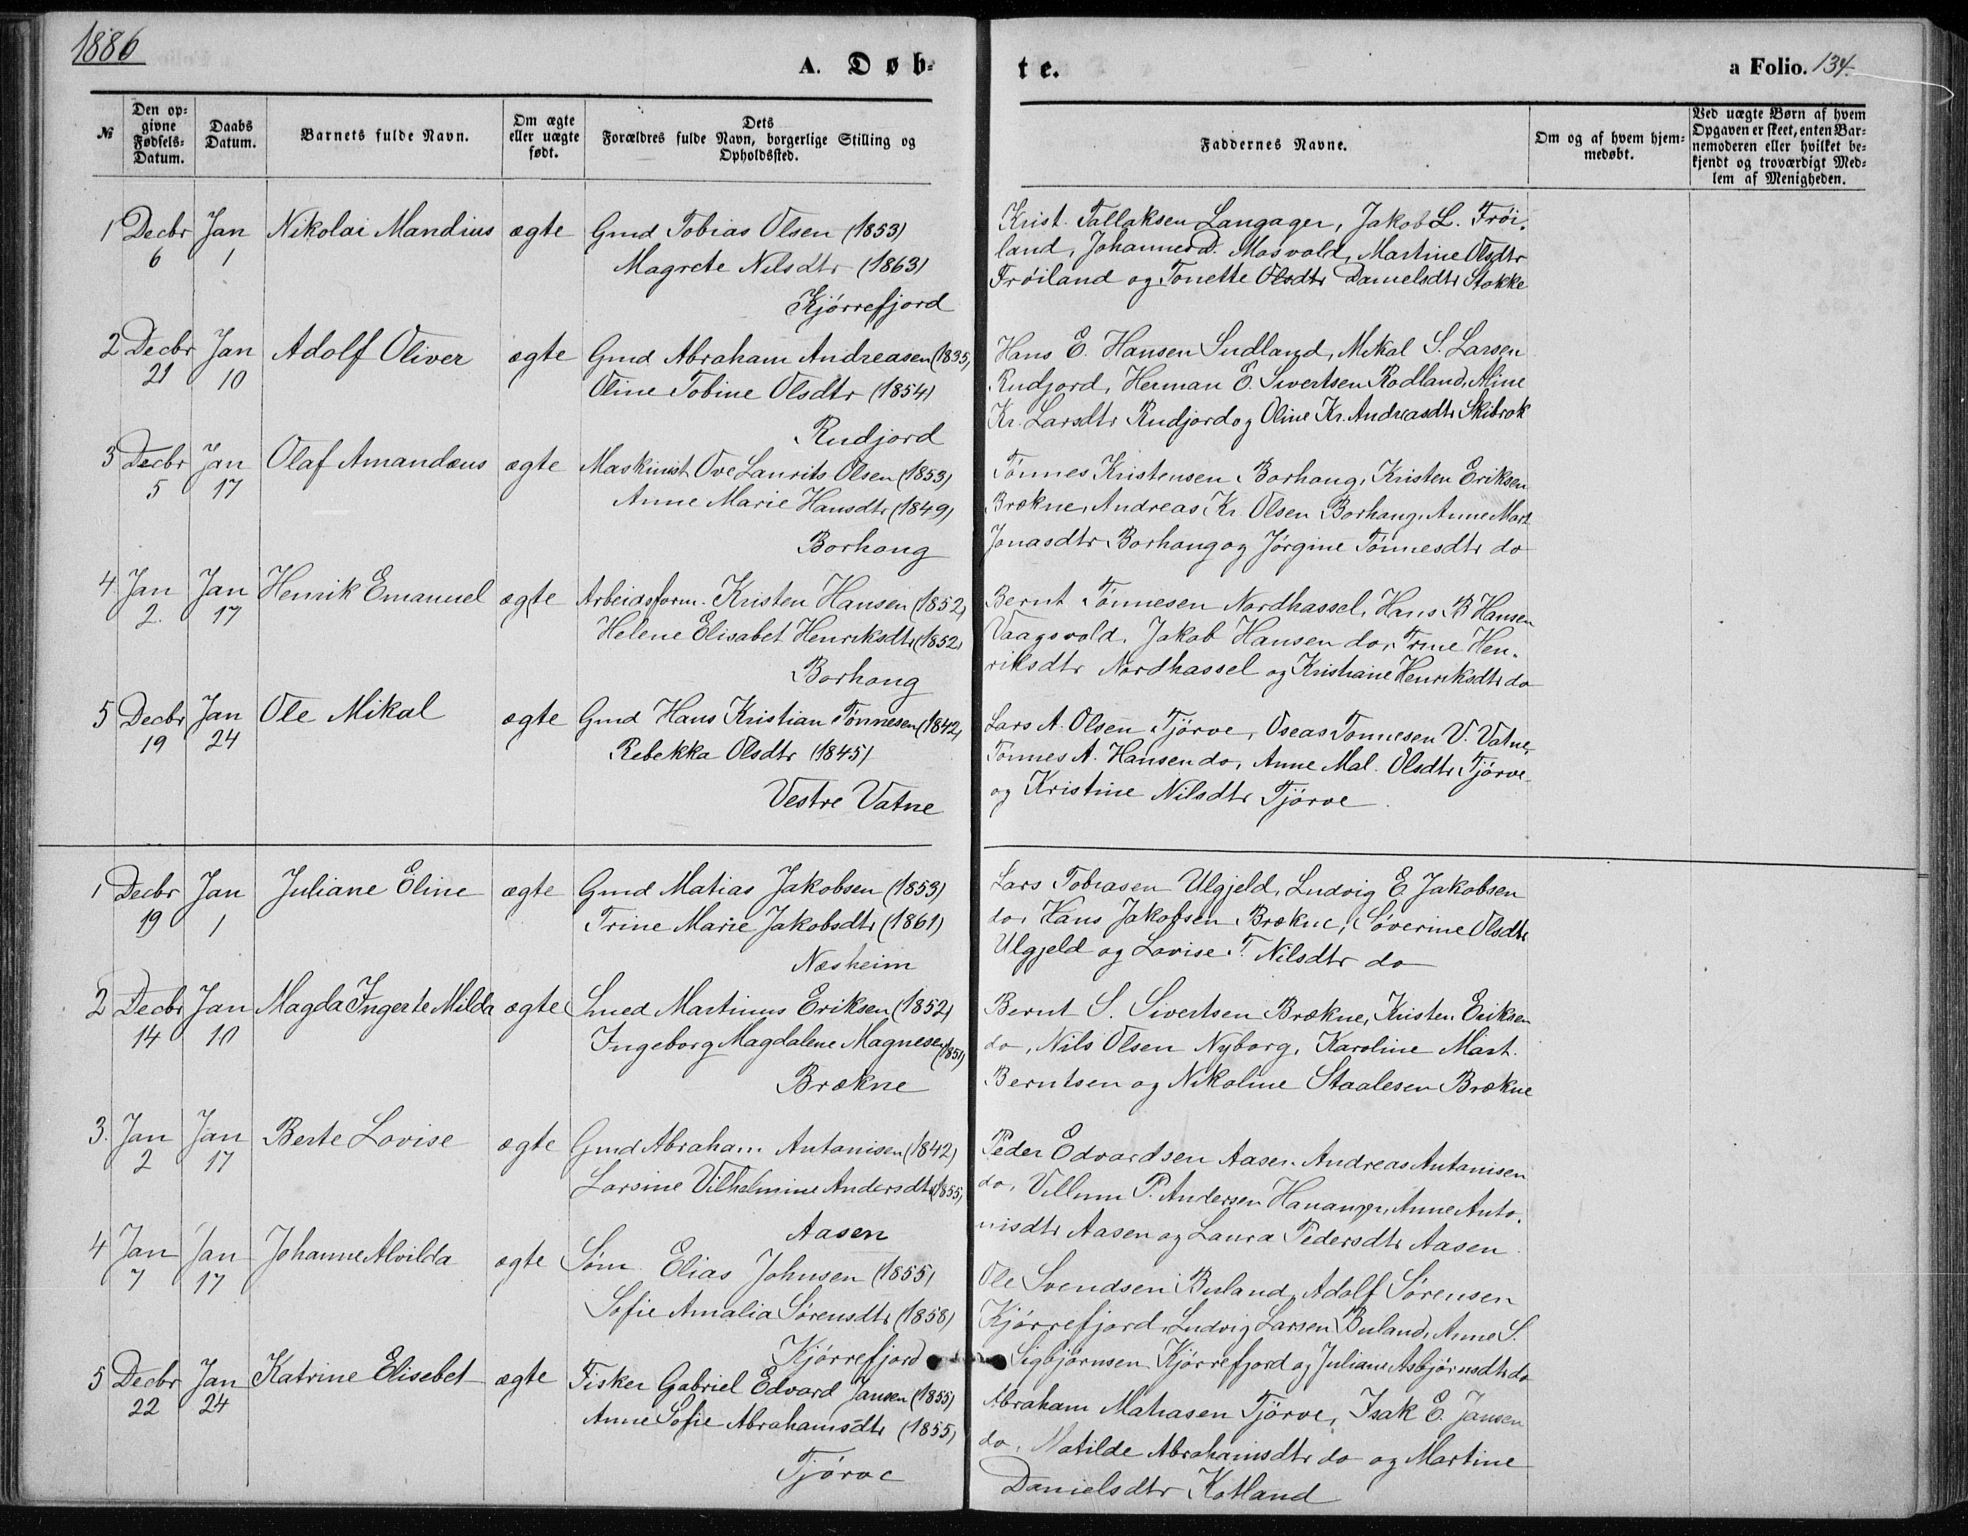 1886
A. Døb-
te.
a Folio. 134.
№
Den op-
givne
Fødsels-
Datum.
Daabs
Datum.
Barnets fulde Navn.
Om ægte
eller uægte
født.
Dets
Forældres fulde Navn, borgerlige Stilling og
Opholdssted.
Faddernes Navne.
Om og af hvem hjem-
medøbt.
Ved uægte Børn af hvem
Opgaven er skeet, enten Bar-
nemoderen eller hvilket be-
kjendt og troværdigt Med-
lem af Menigheden.
1 Decbr Jan Nikolai Mandius ægte Gmd Tobias Olsen (1853)
6 1 Magrete Nilsdtr (1863)
Kjørrefjord
Krist. Tallaksen Langager, Jakob L. Frøi-
land, Johannes D. Mosvold, Martine Olsdtr
Frøiland og Tonette Olsdtr Danielsdtr Stokke
2 Decbr Jan Adolf Oliver ægte Gmd Abraham Andreasen (1835)
21 10 Oline Tobine Olsdtr (1854)
Rudjord
Hans E. Hansen Sudland, Mikal S. Larsen
Rudjord, Herman E. Sivertsen Rodland, Aline
Kr. Larsdtr Rudjord og Oline Kr. Andreasdtr Skibrok
3 Decbr Jan Olaf Amandæus ægte Maskinist Ove Laurits Olsen (1853)
5 17 Anne Marie Hansdtr (1849)
Borhong
Tønnes Kristensen Borhong, Kristen Eriksen
Brækne, Andreas Kr. Olsen Borhong, Anne Mart
Jonasdtr Borhong og Jørgine Tønnesdtr do
4. Jan Jan Henrik Emanuel ægte Arbeidsform. Kristen Hansen (1852)
2. 17 Helene Elisabet Henriksdtr (1852)
Borhong
Bernt Tønnesen Nordhassel, Hans B Hansen
Vaagsvold, Jakob Hansen do, Trine Hen-
riksdtr Nordhassel og Kristiane Henriksdtr do
5 Decbr Jan Ole Mikal ægte Gmd Hans Kristian Tønnesen (1842)
19 24 Rebekka Olsdtr (1845)
Vestre Vatne
Lars A. Olsen Tjørve, Oseas Tønnesen V. Vatne,
Tønnes A. Hansen do, Anne Mal. Olsdtr Tjørve
og Kristine Nilsdtr Tjørve.
1 Decbr Jan Juliane Eline ægte Gmd Matias Jakobsen (1853)
19 1 Trine Marie Jakobsdtr (1861)
Næsheim
Lars Tobiasen Ulgjeld, Ludvig E. Jakobsen
do, Hans Jakobsen Brækne, Søverine Olsdtr
Ulgjeld og Lovise T. Nilsdtr do
2 Decbr Jan Magda Ingerte Milda ægte Smed Martinus Eriksen (1852)
14 10 Ingeborg Magdalene Magnesen (1851)
Brækne
Bernt S. Sivertsen Brækne, Kristen Eriksen
do, Nils Olsen Nyborg, Karoline Mart.
Berntsen og Nikoline Staalesen Brækne
3. Jan Jan Berte Lovise ægte Gmd Abraham Antonisen (1842)
2 17 Larsine Vilhelmine Andersdtr (1855)
Aasen
Peder Edvardsen Aasen, Andreas Antonisen
do, Villum P. Andersen Hananger, Anne Anto-
nisdtr Aasen og Laura Pedersdtr Aasen.
4 Jan Jan Johanne Alvilda ægte Søm. Elias Johnsen (1855)
7 17 Sofie Amalia Sørensdtr (1858)
Kjørrefjord
Ole Svendsen Buland, Adolf Sørensen
Kjørrefjord, Ludvig Larsen Buland, Anne S.
Sigbjørnsen Kjørrefjord og Juliane Asbjørnsdtr do
5 Decbr Jan Katrine Elisebet ægte Fisker Gabriel Edvard Jansen (1855)
22 24 Anne Sofie Abrahamsdtr (1855)
Tjørve
Abraham Matiasen Tjørve, Isak E. Jansen
do, Matilde Abrahamsdtr do og Martine
Danielsdtr Kotland